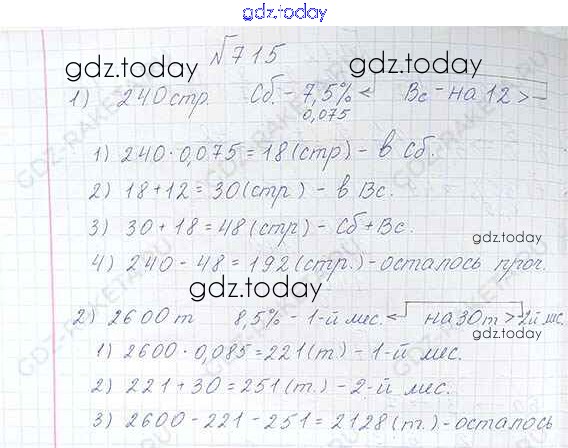 gdz.today
№715
gdz.today gdz.today
1) 240 стр. Сб. - 7,5% < Вс - на 12 >
0,075
1) 240 · 0,075 = 18 (стр) - в Сб.
2) 18 + 12 = 30 (стр) - в Вс.
3) 30 + 18 = 48 (стр) - Сб + Вс.
gdz.today
4) 240 - 48 = 192 (стр.) - осталось проч.
gdz.today gdz.today
2) 2600 т 8,5% - 1-й мес. < на 30 т > 2й мес.
1) 2600 · 0,085 = 221 (т) - 1-й мес.
2) 221 + 30 = 251 (т.) - 2-й мес.
3) 2600 - 221 - 251 = 2128 (т.) - осталось